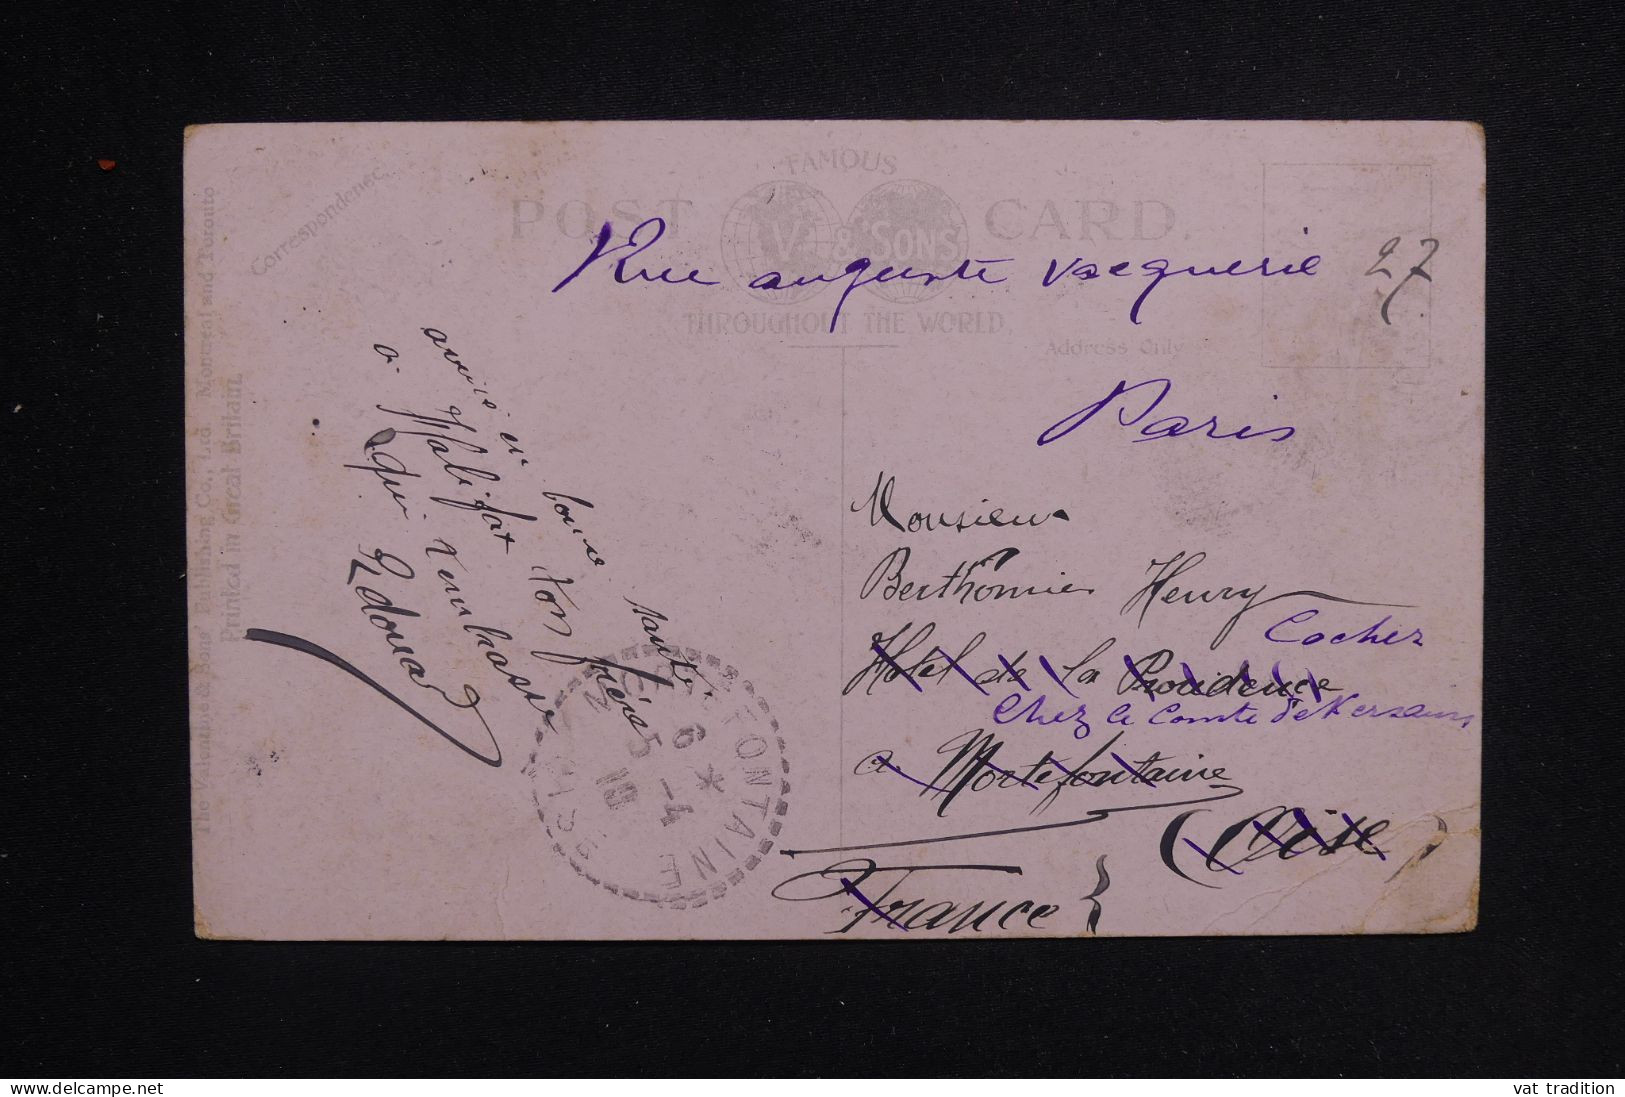 Correspondence.
FAMOUS
POST CARD.
V. & SONS
THROUGHOUT THE WORLD.
Address Only
The Valentine & Sons' Publishing Co., Ltd. Montreal and Toronto
Printed in Great Britain.
Rue auguste vacquerie 27
Paris
Monsieur
Berthomier Henry
Cocher
Hotel de la Providence
Chez le Comte de Kersaint
a Mortefontaine
(Oise)
France
arrivé en bonne santé
a Halifax ton frère
qui t'embrasse
Edouard
MORTEFONTAINE
6 *
5 -4
19
OISE
delcampe.net
vat tradition